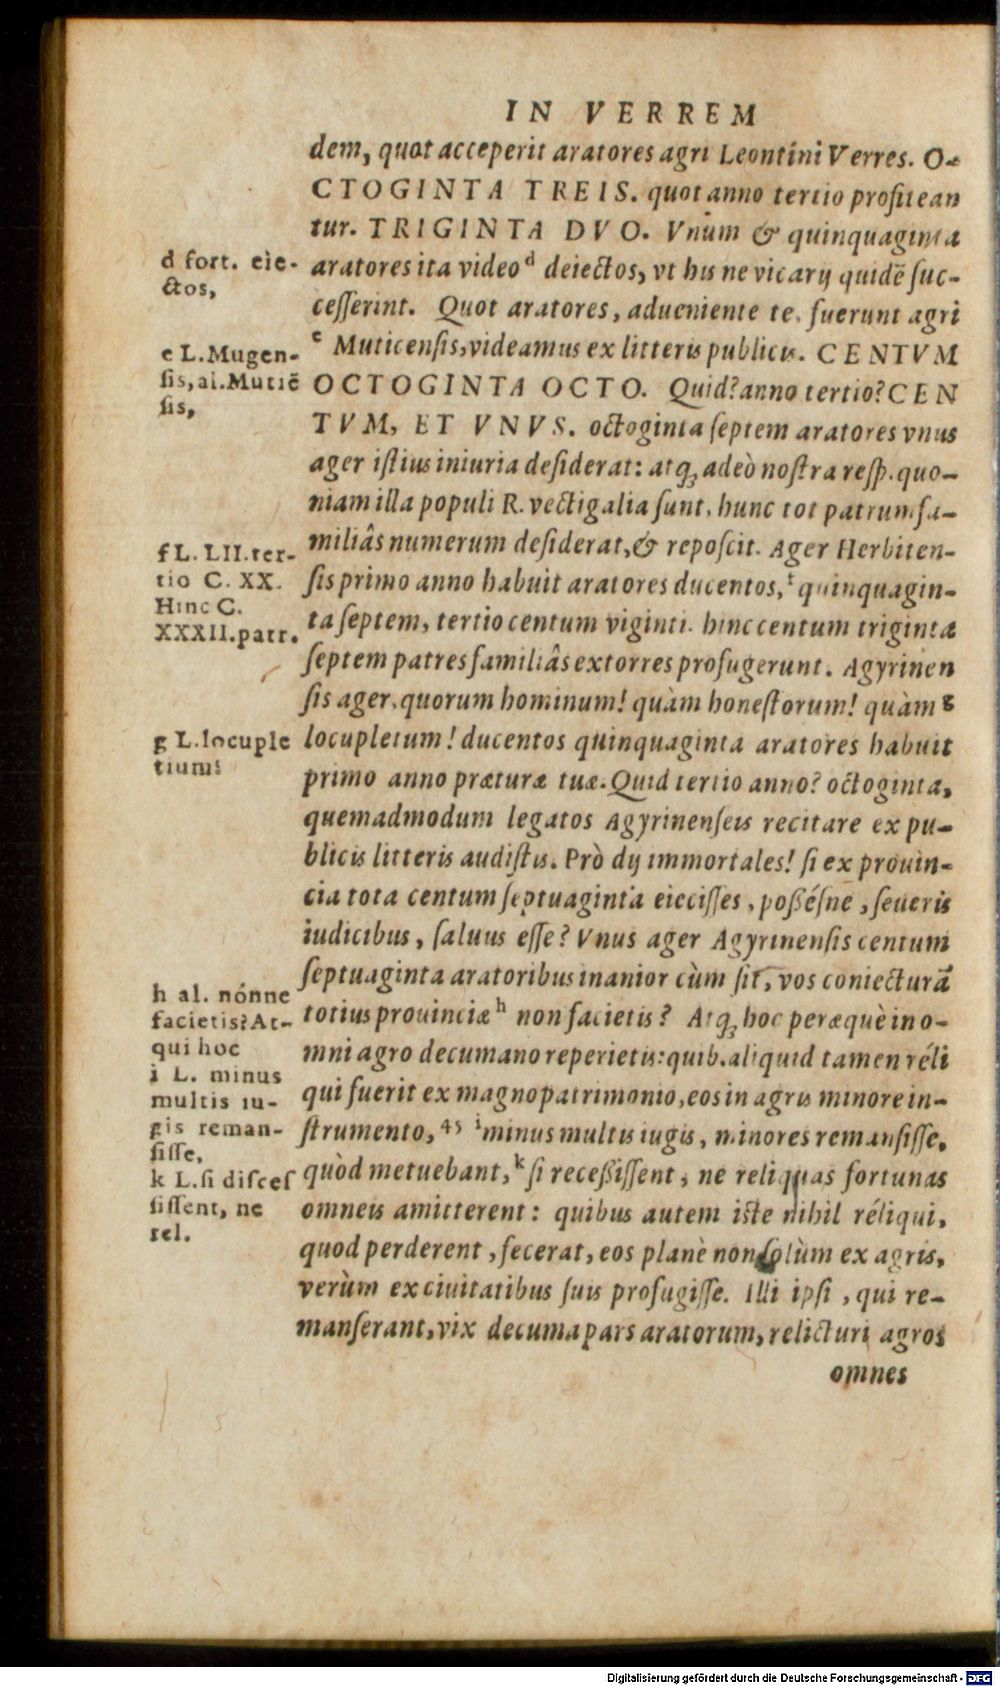 IN VERREM
dem, quot acceperit aratores agri Leontini Verres. O-
CTOGINTA TREIS. quot anno tertio profitean
tur. TRIGINTA DVO. Vnum & quinquaginta
aratores ita video^d deiectos, vt his ne vicarij quidē suc-
cesserint. Quot aratores, adueniente te, fuerunt agri
^e Muticensis, videamus ex litteris publicis. CENTVM
OCTOGINTA OCTO. Quid? anno tertio? CEN
TVM, ET VNVS. octoginta septem aratores vnus
ager istius iniuria desiderat: atq; adeò nostra resp. quo-
niam illa populi R. vectigalia sunt, hunc tot patrum fa-
miliâs numerum desiderat, & reposcit. Ager Herbiten-
sis primo anno habuit aratores ducentos, ^f quinquagin-
ta septem, tertio centum viginti. hinc centum triginta
septem patres familiâs extorres profugerunt. Agyrinen
sis ager, quorum hominum! quàm honestorum! quàm ^g
locupletum! ducentos quinquaginta aratores habuit
primo anno præturæ tuæ. Quid tertio anno? octoginta,
quemadmodum legatos Agyrinenseis recitare ex pu-
blicis litteris audistis. Prò dij immortales! si ex prouin-
cia tota centum septuaginta eiecisses, poßésne, seueris
iudicibus, saluus esse? Vnus ager Agyrinensis centum
septuaginta aratoribus inanior cùm sit, vos coniecturā
totius prouinciæ^h non facietis? Atq; hoc peræquè in o-
mni agro decumano reperietis: quib. aliquid tamen réli
qui fuerit ex magno patrimonio, eos in agris minore in-
strumento, 45 ^i minus multis iugis, minores remansisse,
quòd metuebant, ^k si receßissent, ne reliquas fortunas
omneis amitterent: quibus autem iste nihil réliqui,
quod perderent, fecerat, eos planè non solùm ex agris,
verùm ex ciuitatibus suis profugisse. Illi ipsi, qui re-
manserant, vix decuma pars aratorum, relicturi agros
omnes
d fort. eie-
ctos,
e L. Mugen-
sis, al. Mutiē
sis,
f L. LII. ter-
tio C. XX.
Hinc C.
XXXII. patr.
g L. locuple
tium!
h al. nónne
facietis? At-
qui hoc
i L. minus
multis iu-
gis reman-
sisse,
k L. si disces
sissent, ne
rel.
Digitalisierung gefördert durch die Deutsche Forschungsgemeinschaft - DFG